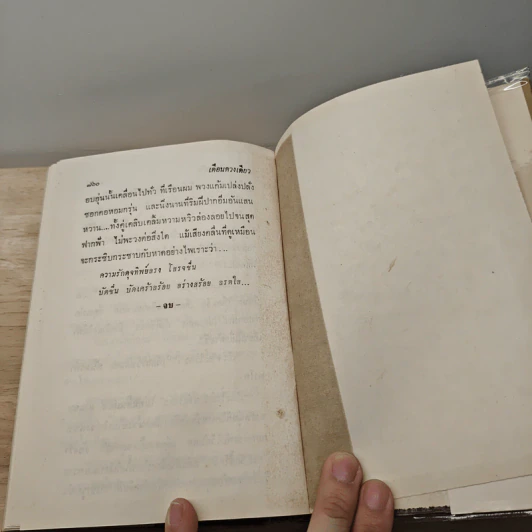 เดือนดวงเดียว
อบอุ่นนั้นเคลื่อนไปทั่ว ที่เรือนผม พวงแก้มเปล่งปลั่ง
ซอกคอหอมกรุ่น และนิ่งนานที่ริมฝีปากอิ่มอันแสน
หวาน....ทั้งคู่เคลิบเคลิ้มหวามหวิวล่องลอยไปจนสุด
ฟากฟ้า ไม่พะวงต่อสิ่งใด แม้เสียงคลื่นที่ดูเหมือน
จะกระซิบกระซาบกับหาดอย่างไพเราะว่า...
ความรักดุจทิพย์สรวง โรจขึ้น
– จบ –